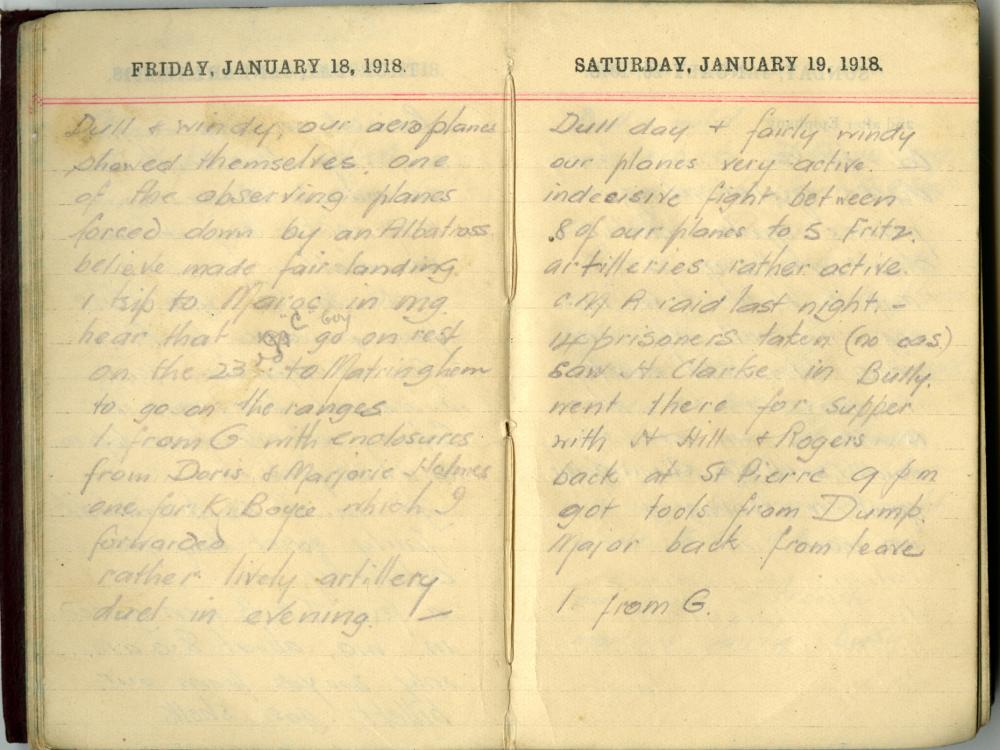 FRIDAY, JANUARY 18, 1918.
Dull & windy, our aeroplanes
showed themselves. one
of the observing planes
forced down by an Albatross.
believe made fair landing.
1 trip to Maroc in mg.
"C" Bty
hear that go on rest
on the 23rd to Matringhem
to go on the ranges
1. from G with enclosures
from Doris & Marjorie Holmes
one for K Boyce which I
forwarded
rather lively artillery
duel in evening. —
SATURDAY, JANUARY 19, 1918.
Dull day & fairly windy
our planes very active.
indecisive fight between
8 of our planes to 5 Fritz.
artilleries rather active.
C.M.R raid last night. -
14 prisoners taken (no cas.)
saw H. Clarke in Bully.
went there for supper
with H Hill & Rogers
back at St Pierre 9 pm
got tools from Dump.
Major back from leave
1. from G.